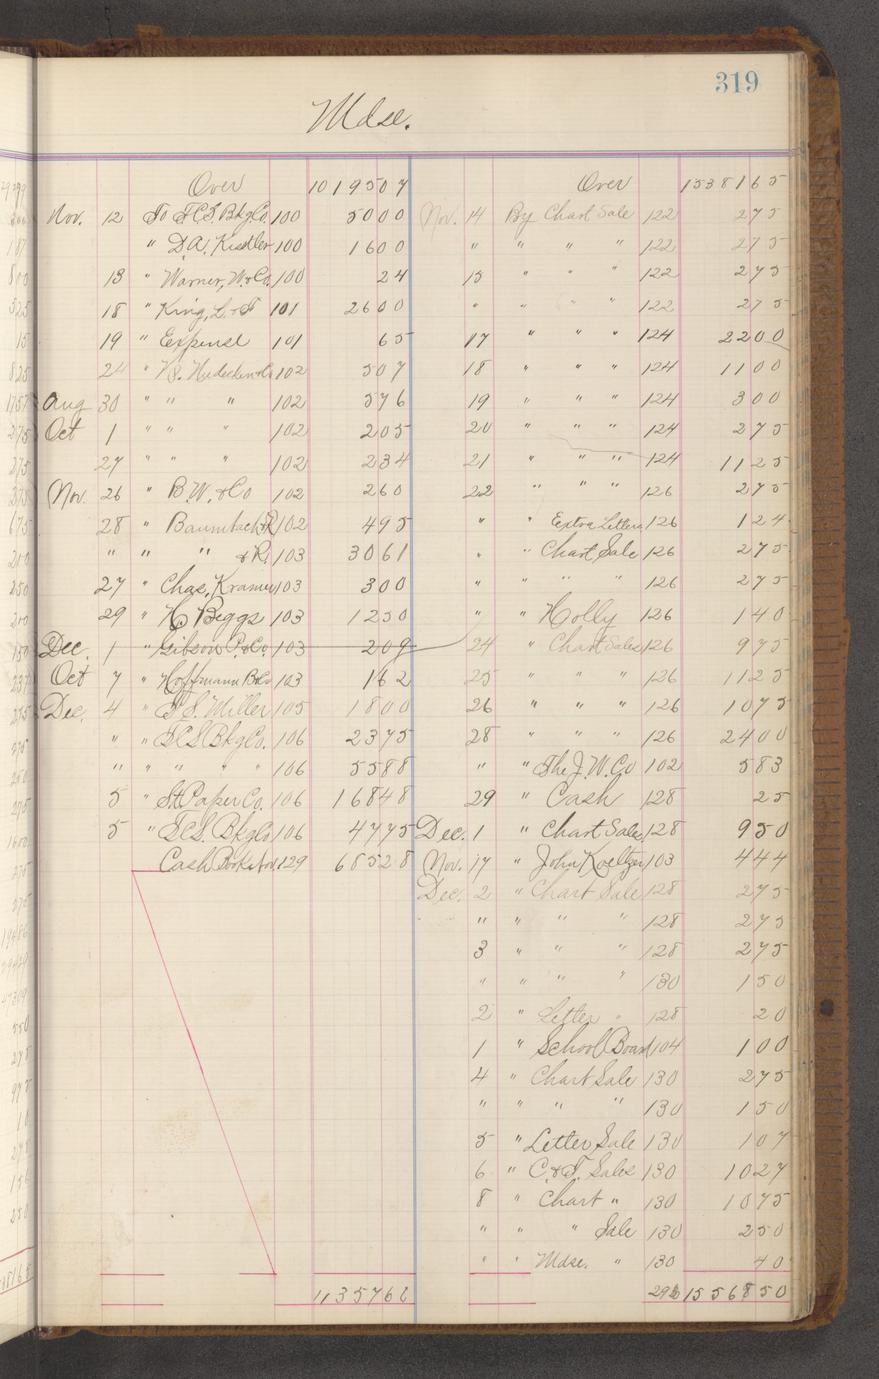 319
Mdse.
Over 1019507
Nov. 12 To T.C.S. Bkg Co. 100 5000
" D.A. Kistler 100 1600
13 " Warner, W. & Co. 100 24
18 " King, L. & T 101 2600
19 " Expense 101 65
24 " 102 507
Aug 30 " " " 102 576
Oct 1 " " " 102 205
27 " " " 102 234
Nov. 26 " B.W. & Co 102 260
28 " Baumbach & R 102 495
" " " & R. 103 3061
27 " Chas. Kramer 103 300
29 " H Beggs 103 1250
Dec. 1 " Gibson P. & Co. 103 209
Oct 7 " Hoffmann B. Co 103 162
Dec. 4 " T.S. Miller 105 1800
" " T.C.S. Bkg Co. 106 2375
" " " " " 106 5588
5 " St. Paper Co. 106 16848
5 " T.C.S. Bkg Co 106 4775
Cash Books Nov 129 68528
1135762
Over 1538165
Nov. 14 By Chart Sale 122 275
" " " " 122 275
15 " " " 122 275
" " " " 122 275
17 " " " 124 2200
18 " " " 124 1100
19 " " " 124 300
20 " " " 124 275
21 " " " 124 1125
22 " " " 126 275
" " Extra Letters 126 124
" " Chart Sale 126 275
" " " " 126 275
" " Holly 126 140
24 " Chart Sales 126 975
25 " " " 126 1125
26 " " " 126 1075
28 " " " 126 2400
" " The J. W. Co 102 583
29 " Cash 128 25
Dec. 1 " Chart Sale 128 950
Nov. 17 " John Koeltzer 103 444
Dec. 2 " Chart Sale 128 275
" " " " 128 275
3 " " " 128 275
" " " " 130 150
2 " Letter " 128 20
1 " School Board 104 100
4 " Chart Sale 130 275
" " " " 130 150
5 " Letter Sale 130 107
6 " C. & T. Sales 130 1027
8 " Chart " 130 1075
" " " Sale 130 250
" " Mdse. " 130 40
1556850